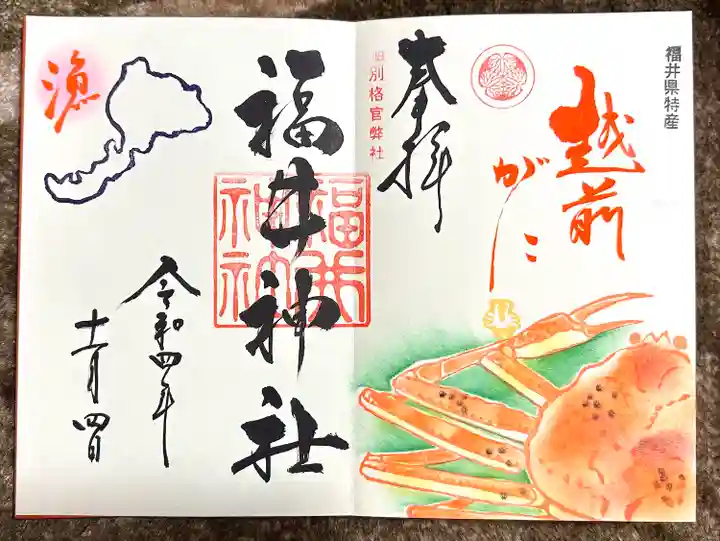 福井県特産
越前
がに
奉拝
旧別格官弊社
福井神社
福井
神社
令和四年
十一月四日
漁